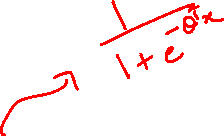 1
1 + e^{-θ^T x}